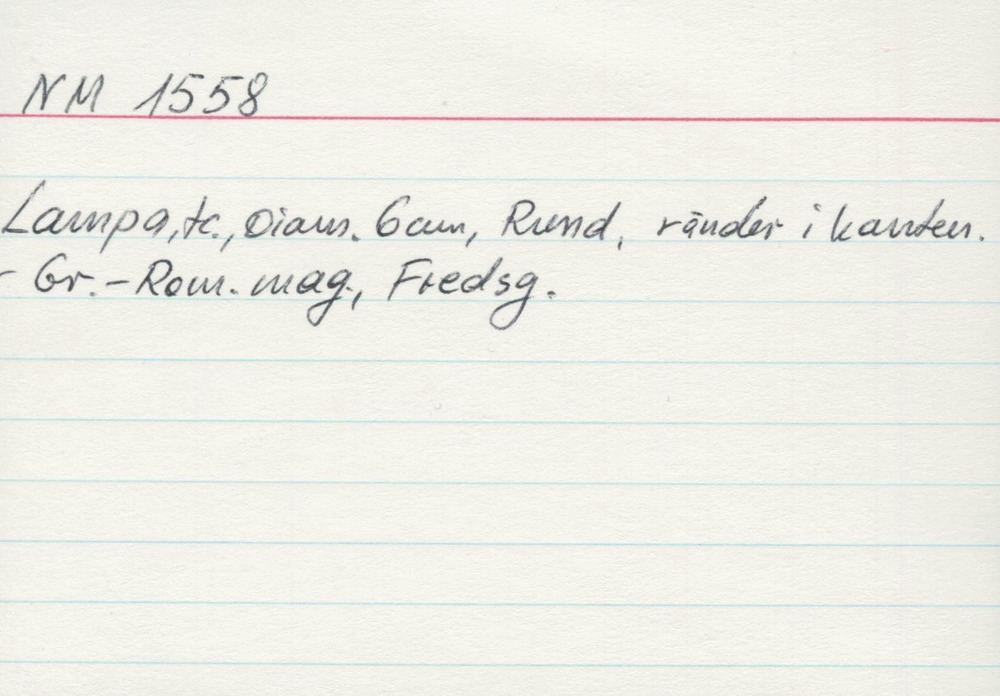 NM 1558
Lampa, tc., Diam. 6 cm, Rund, ränder i kanten.
- Gr.-Rom. mag., Fredsg.